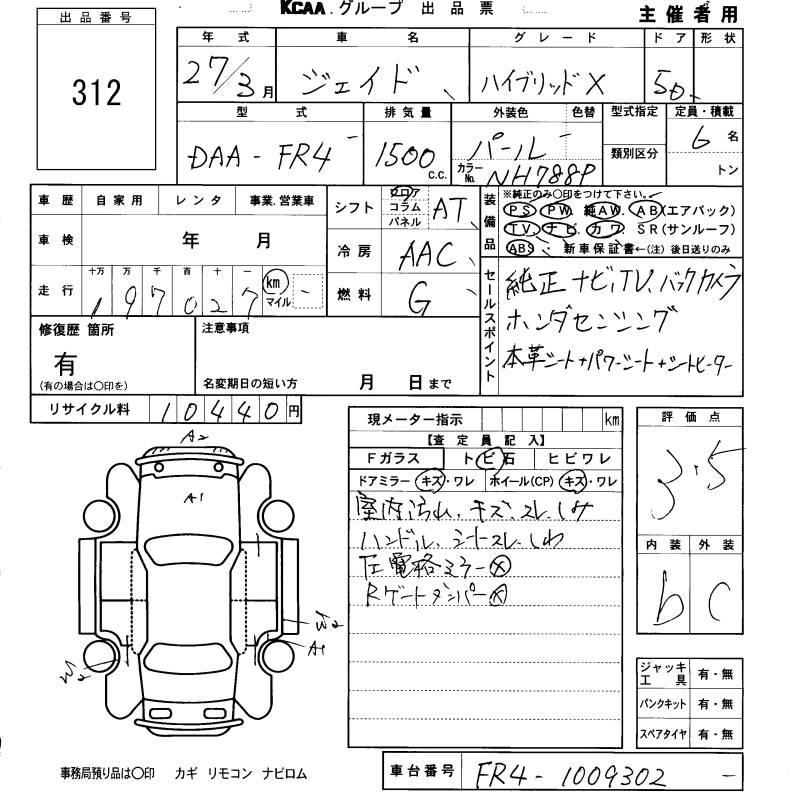 KCAA.グループ 出品票
主催者用
出品番号
312
年式 車名 グレード ドア 形状
27/3月 ジェイド ハイブリッドX 5D
型式 排気量 外装色 色替 型式指定 定員・積載
DAA-FR4 1500c.c. パール 6名
カラーNo. NH788P 類別区分 トン
車歴 自家用 レンタ 事業.営業車
シフト フロア コラム パネル AT
装備品
※純正のみ○印をつけて下さい。
PS PW 純AW. AB(エアバック)
TV. ナビ. カワ. SR(サンルーフ)
ABS. 新車保証書←(注)後日送りのみ
車検 年 月
冷房 AAC
走行 十万 万 千 百 十 一 km マイル
197027
燃料 G
セールスポイント
純正ナビ,TV、バックカメラ
ホンダセンシング
本革シート+パワーシート+シートヒーター
修復歴 箇所
有
(有の場合は○印を)
注意事項
名変期日の短い方 月 日まで
リサイクル料 10440円
現メーター指示 km
【査定員記入】
Fガラス トビ石 ヒビワレ
ドアミラー(キズ・ワレ ホイール(CP) キズ・ワレ
室内汚れ、キズ、スレ、シミ
ハンドル、シートスレ、しわ
左電格ミラー☒
Rゲートダンパー☒
評価点
3.5
内装 外装
b C
A2
A1
W2
A1
W2
ジャッキ工具 有・無
パンクキット 有・無
スペアタイヤ 有・無
事務局預り品は○印 カギ リモコン ナビロム
車台番号 FR4-1009302